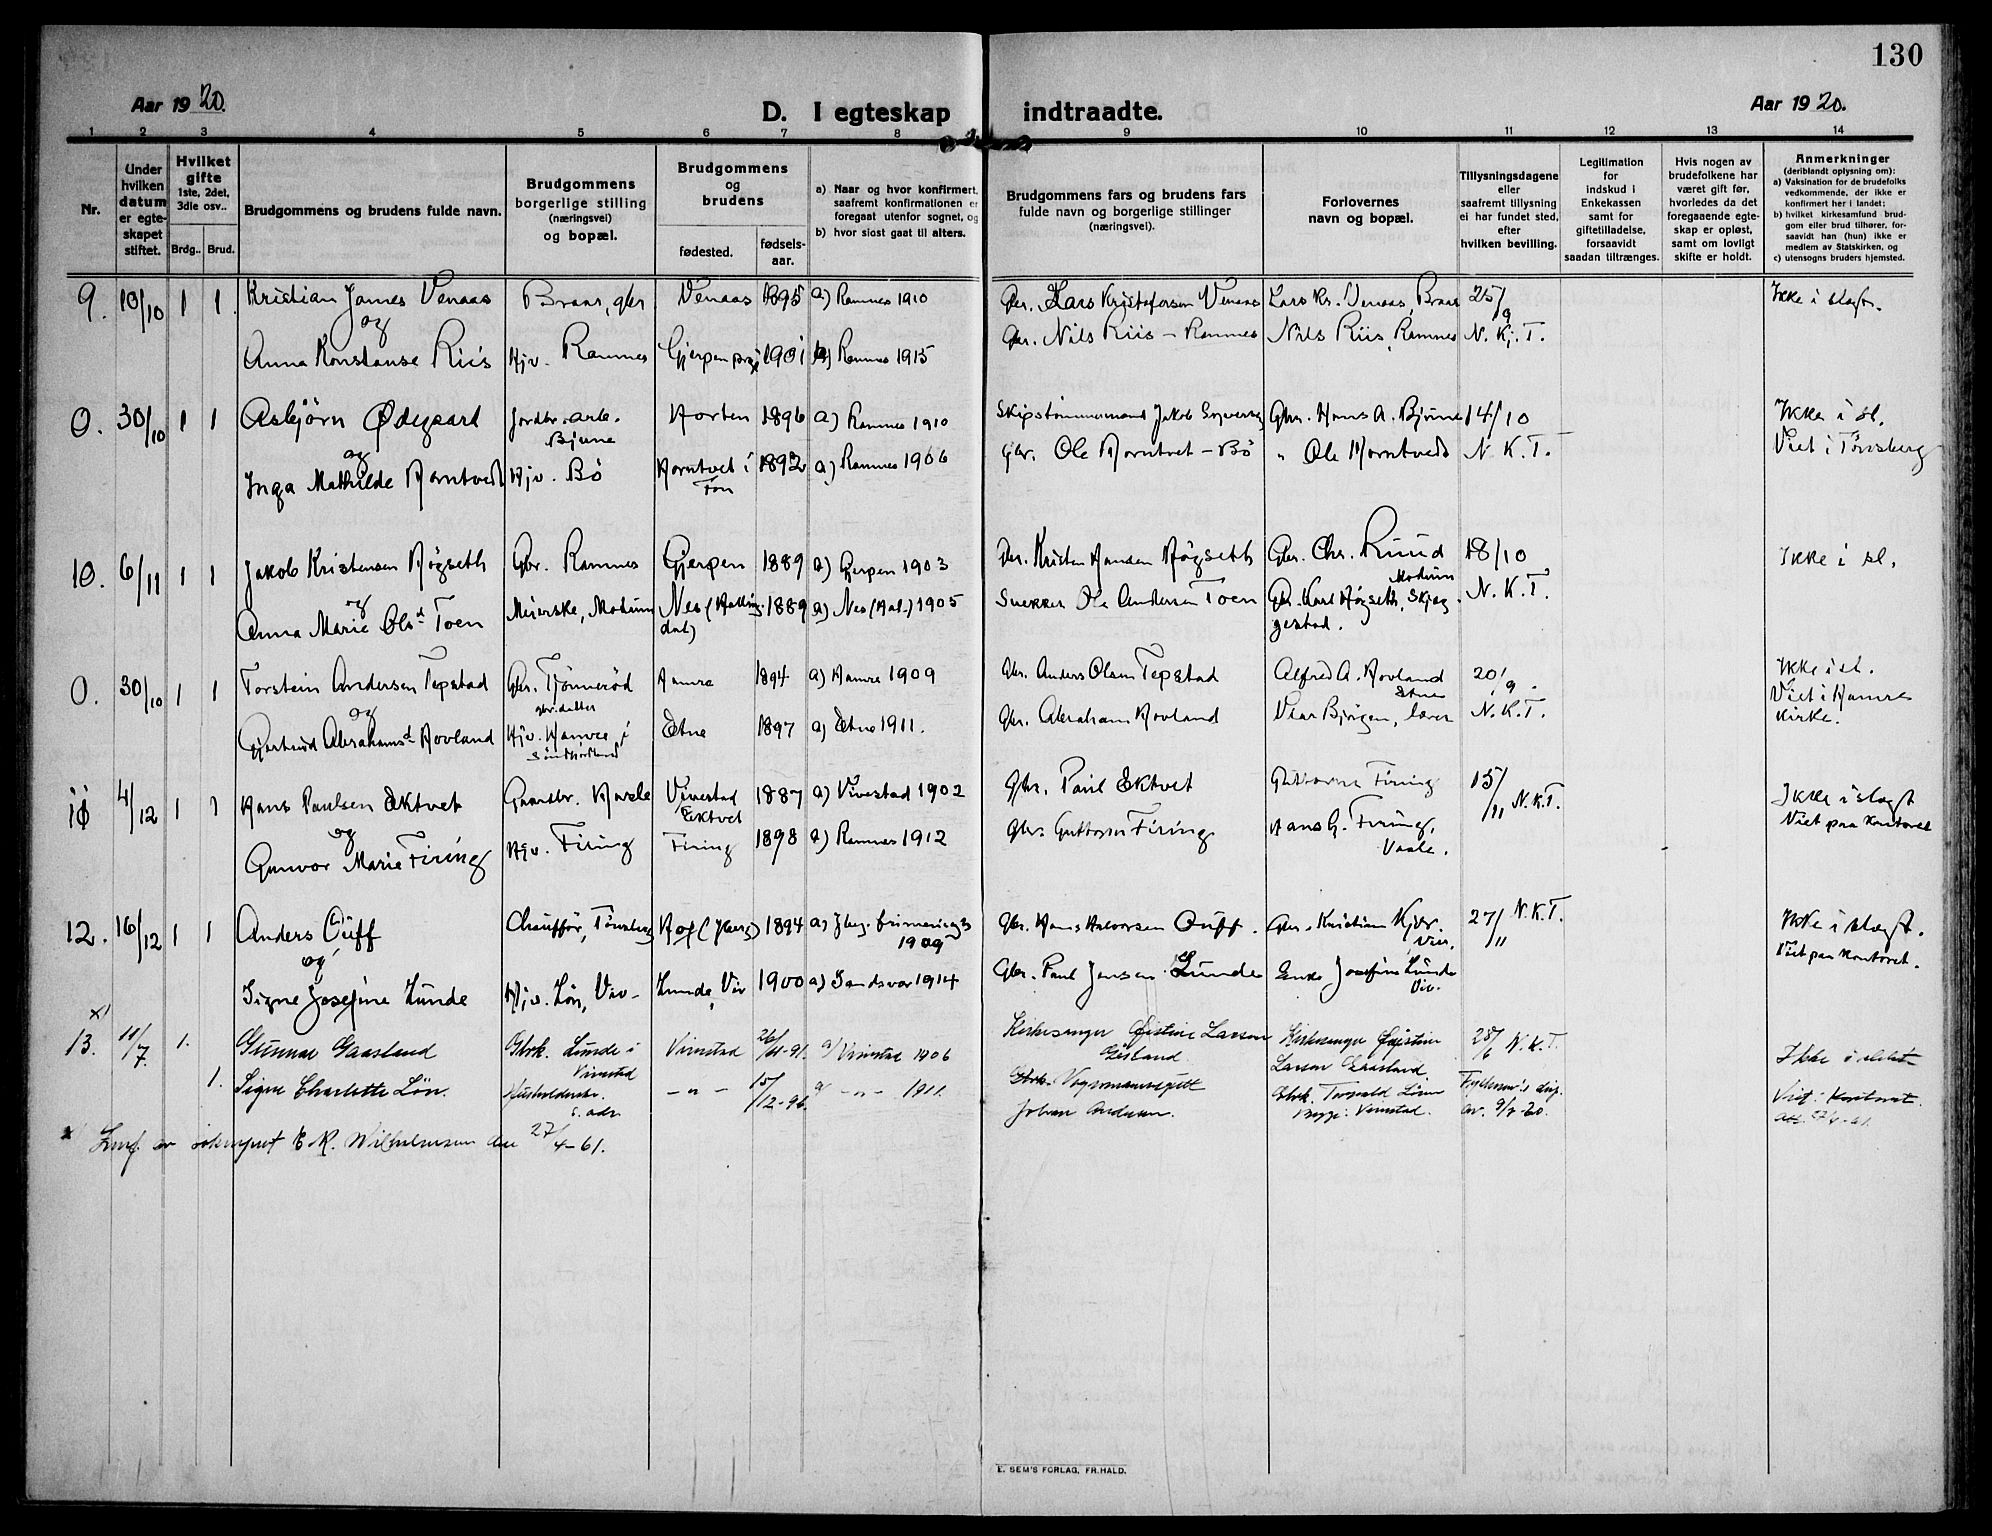 130
Aar 1920.
D. I egteskap indtraadte.
Aar 1920.
1 2 3 4 5 6 7 8 9 10 11 12 13 14
Nr.
Under hvilken datum er egteskapet stiftet.
Hvilket gifte 1ste, 2det, 3die osv..
Brdg.. Brud.
Brudgommens og brudens fulde navn.
Brudgommens borgerlige stilling (næringsvei) og bopæl.
Brudgommens og brudens
fødested.
fødselsaar.
a) Naar og hvor konfirmert, saafremt konfirmationen er foregaat utenfor sognet, og
b) hvor sidst gaat til alters.
Brudgommens fars og brudens fars fulde navn og borgerlige stillinger (næringsvei).
Forlovernes navn og bopæl.
Tillysningsdagene eller saafremt tillysning ei har fundet sted, efter hvilken bevilling.
Legitimation for indskud i Enkekassen samt for giftetilladelse, forsaavidt saadan tiltrænges.
Hvis nogen av brudefolkene har været gift før, hvorledes da det foregaaende egteskap er opløst, samt om lovligt skifte er holdt.
Anmerkninger (deriblandt oplysning om):
a) Vaksination for de brudefolks vedkommende, der ikke er konfirmert her i landet;
b) hvilket kirkesamfund brudgom eller brud tilhører, forsaavidt han (hun) ikke er medlem av Statskirken, og
c) utensogns bruders hjemsted.
9. 10/10 1 1 Kristian James Venaas Braar, gbr Venaas 1895 a) Ramnes 1910 Gbr. Lars Kristofersen Venaas Lars Kr. Venaas, Braar 25/9 Ikke i slegt.
og
Anna Konstanse Riis Hjv. Ramnes Gjerpen 1901 a) Ramnes 1915 Gbr. Nils Riis - Ramnes Nils Riis, Ramnes N. K. T.
0. 30/10 1 1 Asbjörn Ødegaard Jordbr. arb. Bjune Horten 1896 a) Ramnes 1910 Skipstømmermand Jakob Gbr. Hans A. Bjune 14/10 Ikke i sl.
og
Inga Mathilde Horntvedt Hjv. Bö Horntvet i Fon 1892 a) Ramnes 1906 Gbr. Ole Horntvet - Bö " Ole Horntvedt N. K. T. Viet i Tønsberg
10. 6/11 1 1 Jakob Kristensen Høgseth Gbr. Ramnes Gjerpen 1889 a) Gjerpen 1903 Kristen Hansen Høgseth Gbr. Chr. Ruud Modum 18/10 Ikke i sl.
og
Anna Marie Olsd Toen Meierske, Modum Nes (Hallingdal) 1889 a) Nes (Hal.) 1905 Snekker Ole Andersen Toen Gbr. Karl Høgseth, Skjeggestad. N. K. T.
0. 30/10 1 1 Torstein Andersen Tepstad Gbr. Tjönneröd Hamre 1894 a) Hamre 1909 Gbr. Anders Olsen Tepstad Alfred A. Hovland Etne 20/9. Ikke i sl.
og gbr. datter
Gjertrud Abrahamsd. Hovland Hjv. Hamre i Etne 1897 a) Etne 1911. Gbr. Abraham Hovland lærer N. K. T. Viet i Hamre Kirke.
11 4/12 1 1 Hans Paulsen Ektvet Gaardbr. Vivestad Ektvet 1887 a) Vivestad 1902 Gbr. Paul Ektvet Guttorm Firing 15/11 N. K. T. Ikke i slegt
og
Gunvor Marie Firing Hjv. Firing Firing 1898 a) Ramnes 1912 Gbr. Guttorm Firing Hans G. Firing, Vaale. Viet paa kontoret
12. 16/12 1 1 Anders Ouff Chauffør, Tønsberg Hof (Jberg) 1894 a) 1909 Gbr. Hans Halvorsen Ouff. Gbr. Kristian Kjær Viv. 27/11 N. K. T. Ikke i slegt.
og
Signe Josefine Lunde Hjv. Løn, Viv- Lunde, Viv 1900 a) Sandsvær 1914 Gbr. Paul Jensen Lunde Enke Josefine Lunde Viv. Viet paa kontoret.
x)
13. 11/7. 1. Gunnar Gaasland Gbrk. Lunde i Vivestad Vivestad 26/11-91. a) Vivestad 1906 Kirkesanger Øistine Larsen Gaasland Kirkesanger Øistine Larsen Gaasland 25/6 N. K. T. Ikke i slekt
1. Signe Charlotte Løn. Husholderske. s. adr. -"- 15/12-96. a) -"- 1911. Vognmannspett Johan Andersen. Gbrk. Torvald Løne Bugge i Vivestad. Fylkesm's disp. av. 9/7-20. Viet i kontoret.
x) Innf. av sokneprest E. K. Wilhelmsen den 27/4-61.